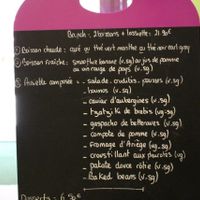 Brunch : 2 boissons + 1 assiette : 21.90€
① Boisson chaude : café ou thé vert menthe ou thé noir earl grey
② Boisson fraîche : smoothie banane (v.sg) ou jus de pomme
ou vin rouge de pays (v.sg)
③ Assiette composée : - salade, crudités, pousses (v.sg)
- houmos (v.sg)
- caviar d'aubergines (v.sg)
- tzatziki de brebis (vg)
- gaspacho de betteraves (v.sg)
- compote de pomme (v.sg)
- fromage d'Ariège (vg)
- croustillant aux pleurotes (vg)
- patate douce rôtie (v.sg)
- Baked beans (v.sg)
Desserts = 6.90€